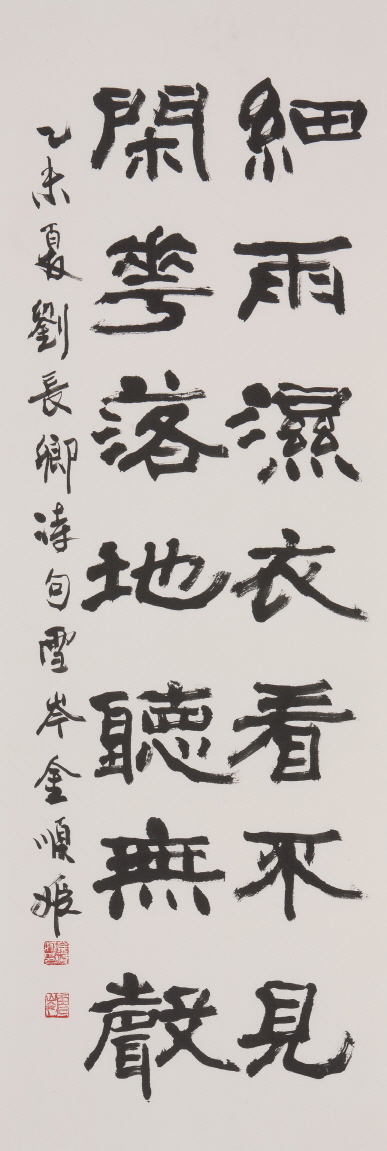 細雨濕衣看不見
閑花落地聽無聲
乙未夏劉長卿詩句雪岑金順姬